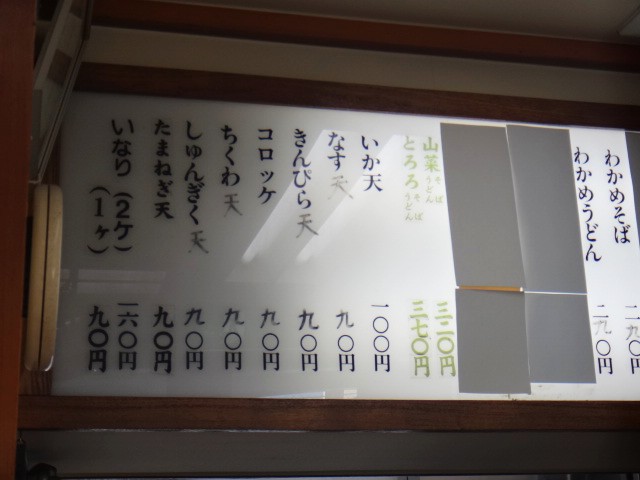 わかめそば 二九〇円
わかめうどん 二九〇円
山菜そばうどん 三二〇円
とろろそばうどん 三七〇円
いか天 一〇〇円
なす天 九〇円
きんぴら天 九〇円
コロッケ 九〇円
ちくわ天 九〇円
しゅんぎく天 九〇円
たまねぎ天 九〇円
いなり(2ケ) 一六〇円
(1ヶ) 九〇円